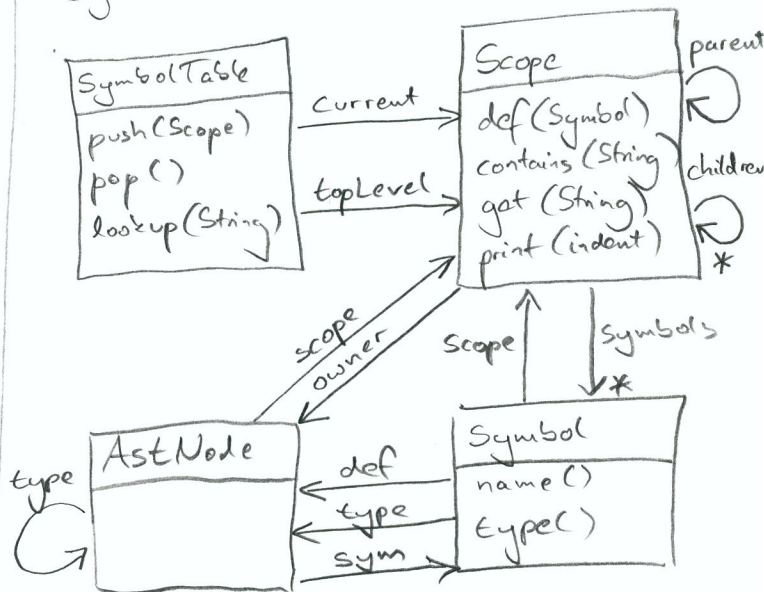 SymbolTable
push(Scope)
pop()
lookup(String)
current
topLevel
Scope
def(Symbol)
contains(String)
get(String)
print(indent)
parent
children
*
scope
owner
Scope
Symbols
*
AstNode
type
def
type
sym
Symbol
name()
type()